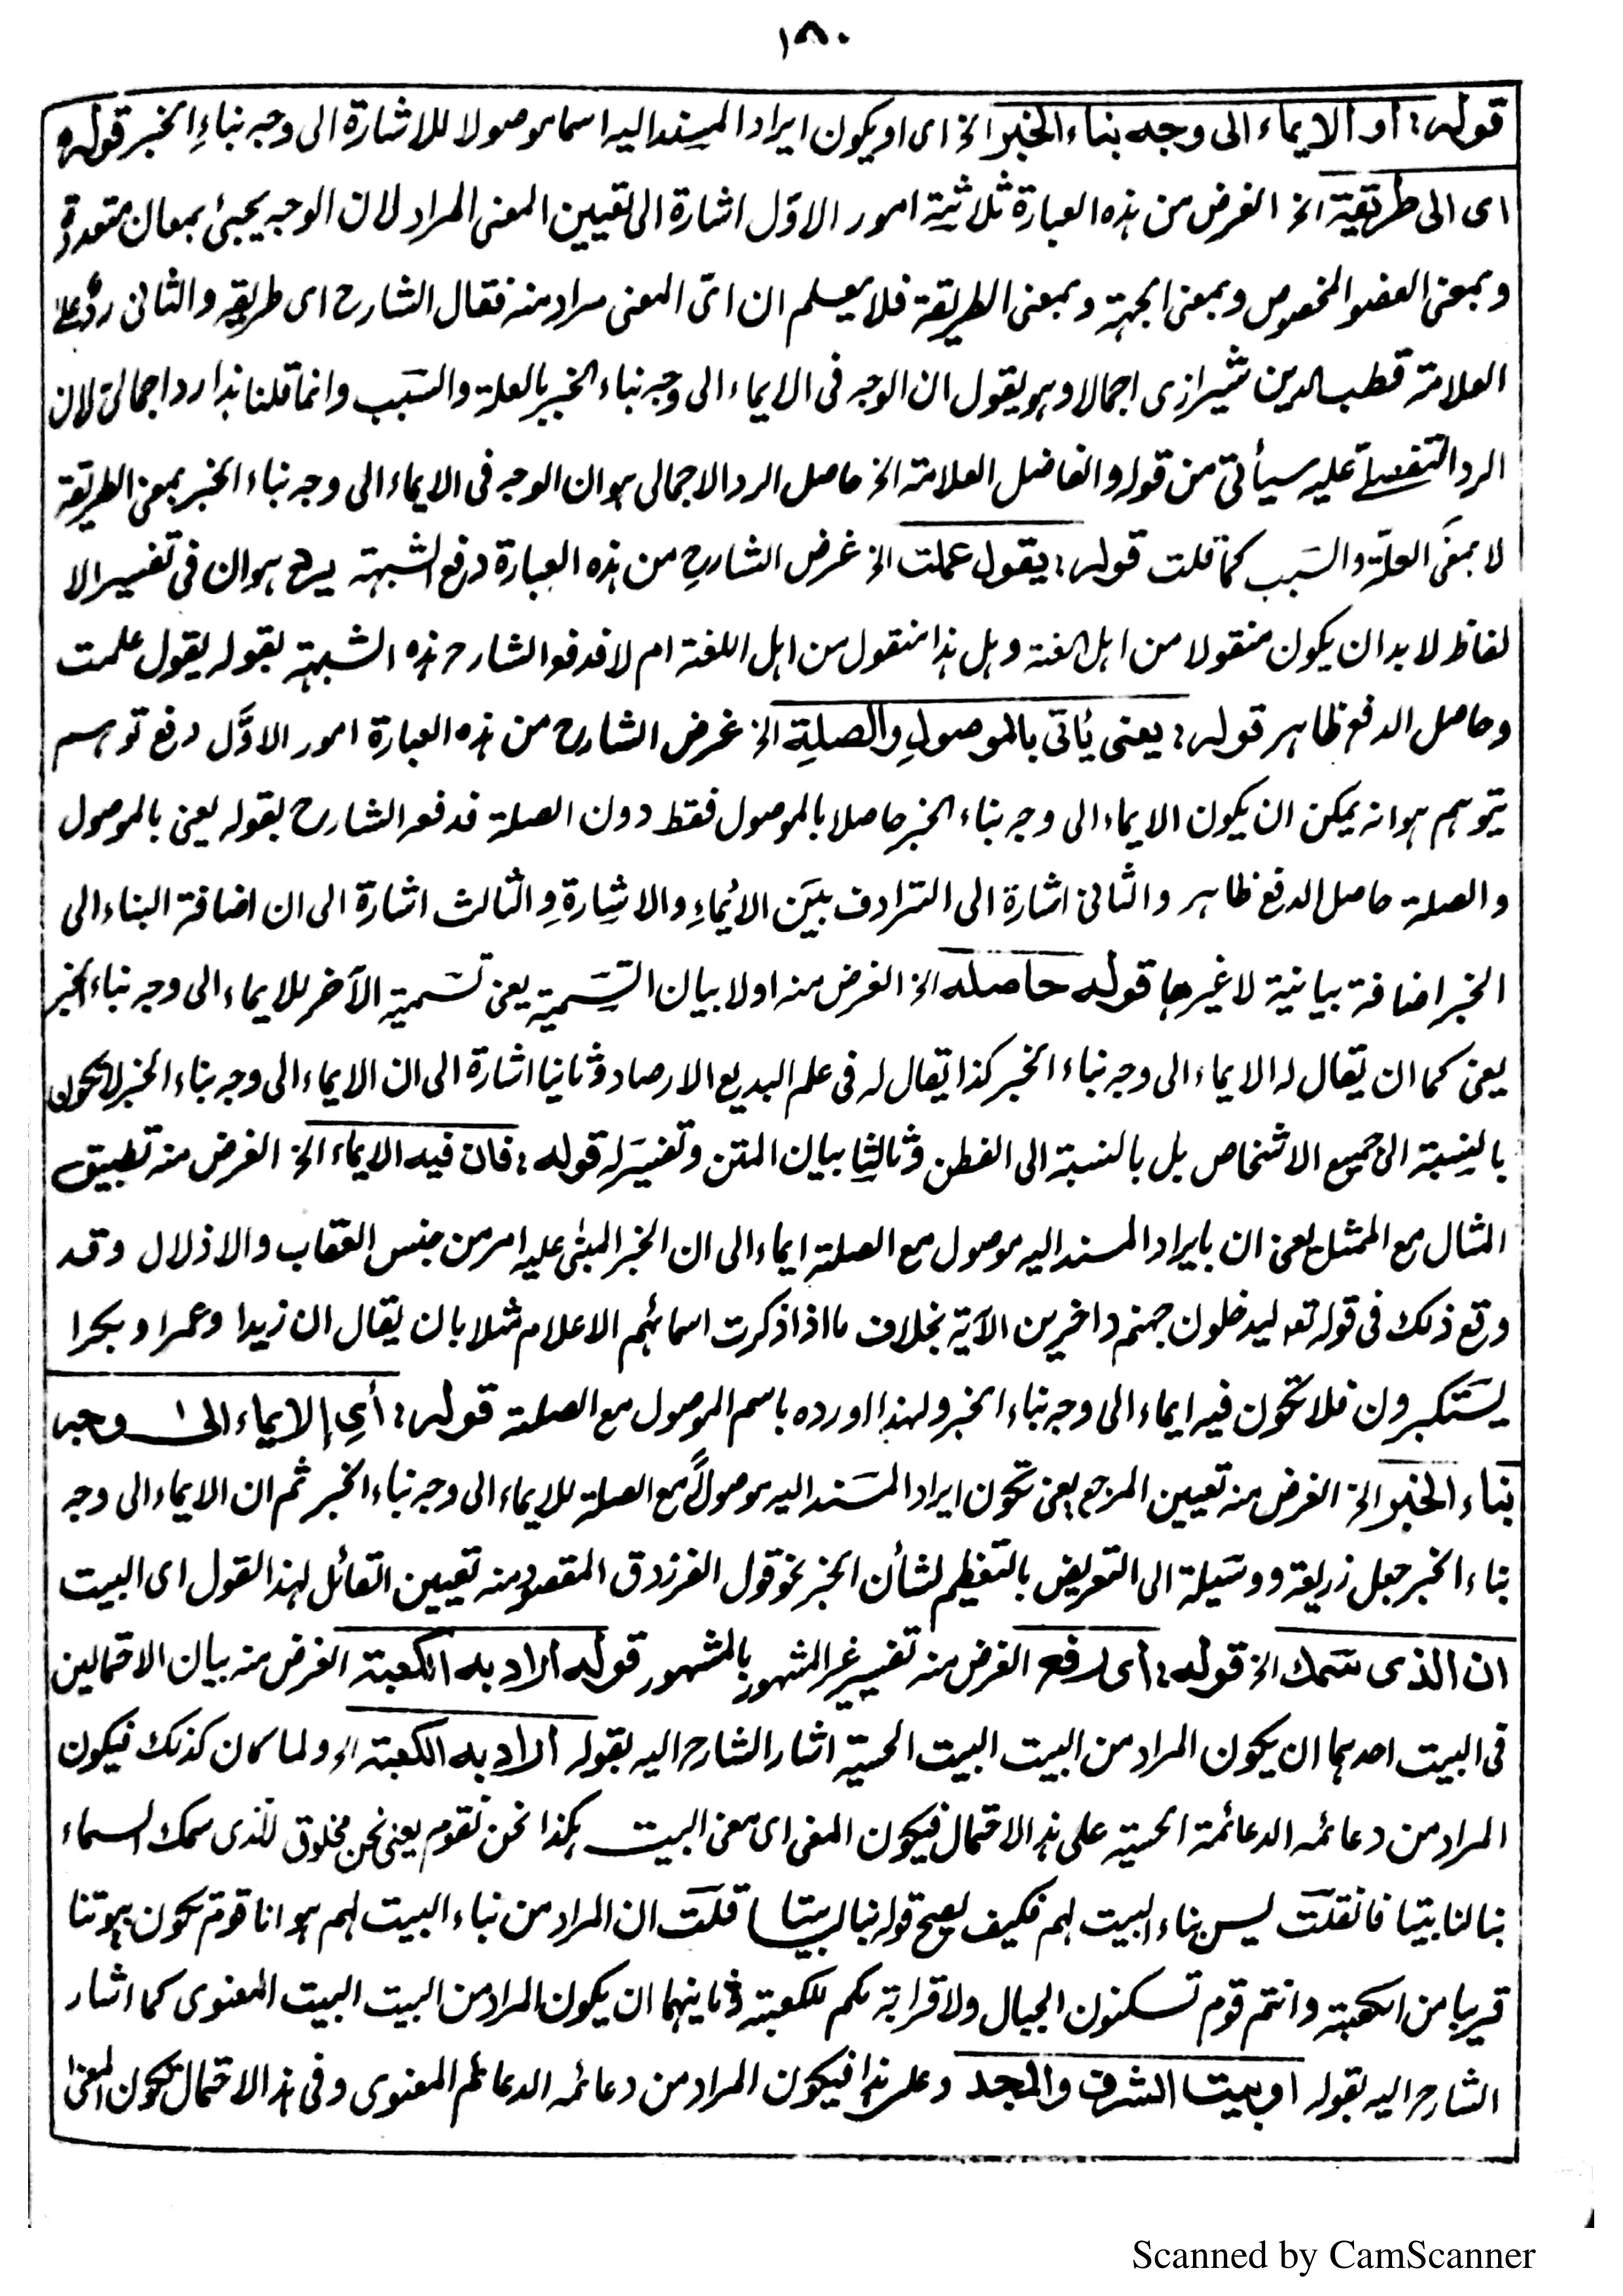 ١٨٠
قوله: او الايماء الى وجه بناء الخبر الخ اى او يكون ايراد المسند اليه اسما موصولا للاشارة الى وجه بناءِ الخبر قوله
اى الى طريقية الخ الغرض من هذه العبارة ثلاثية امور الاوّل اشارة الى تعيين المعنى المراد لان الوجه يجيئ بمعان متعددة
وبمعنى العضو المخصوص وبمعنى الجهة وبمعنى الطريقة فلا يعلم ان اىّ المعنى مراد منه فقال الشارح اى طريقه والثانى ردٌّ على
العلامة قطب الدين شيرازى اجمالا وهو يقول ان الوجه فى الايماء الى وجه بناء الخبر بالعلة والسَبب وانما قلنا هذا رد اجمالى لان
الرد التفصيلے عليه سيأتى من قوله والفاضل العلامة الخ حاصل الرد الاجمالى هو ان الوجه فى الايماء الى وجه بناء الخبر بمعنى الطريقة
لا بمعنَى العلّة والسَبب كما قلت قوله: يقول عملت الخ غرض الشارح من هذه العبارة دفع الشبهة يرد هو ان فى تفسير الا
لفاظ لا بد ان يكون منقولا من اهل اللغة وهل هذا منقول من اهل اللغة ام لا فدفع الشارح هذه الشبهة بقوله يقول علمت
وحاصل الدفع ظاهر قوله: يعنى يُاتى بالموصولِ والصلةِ الخ غرض الشارح من هذه العبارة امور الاوَّل دفع توهم
يتوهم هو انه يمكن ان يكون الايماء الى وجه بناء الخبر حاصلا بالموصول فقط دون الصلة فدفعه الشارح بقوله يعنى بالموصول
والصلة حاصل الدفع ظاهر والثانى اشارة الى الترادف بيَن الايُماءِ والاشِارةِ والثالث اشارة الى ان اضافة البناء الى
الخبر اضافة بيانية لا غيرها قوله حاصله الخ الغرض منه اولا بيان التسَمية يعنى تسَمية الآخر للايماء الى وجه بناء الخبر
يعنى كما ان يقال له الايماء الى وجه بناء الخبر كذا يقال له فى علم البديع الارصاد وثانيا اشارة الى ان الايماء الى وجه بناء الخبر لا يكون
بالنِسبة الى جميع الاشخاص بل بالنسبة الى الفطن وثالثِا بيان المتن وتفسَيره قوله: فان فيه الايماء الخ الغرض منه تطبيق
المثال مع الممثل يعنى ان بايراد المسند اليه موصول مع الصلة ايماء الى ان الخبر المبنىٰ عليه امر من جنس العقاب والاذلال وقد
وقع ذلك فى قوله تعـ ليدخلون جهنم داخرين الآية بخلاف ما اذا ذكرت اسمائهم الاعلام مثلا بان يقال ان زيدا وعمرا وبكرا
يستَكبرون فلا تكون فيه ايماء الى وجه بناء الخبر ولهذا اورده باسم الموصول مع الصلة قوله: أىِ الايماء الى وجه
بناء الخبر الخ الغرض منه تعيين المرجع يعنى تكون ايراد المسَند اليه موصولاً مع الصلة للايماء الى وجه بناء الخبر ثم ان الايماء الى وجه
بناء الخبر جعل زريعة ووسَيلة الى التعريض بالتعظيم لشأن الخبر نحو قول الفرزدق المقصود منه تعيين القائل لهذا القول اى البيت
ان الذى سَمك الخ قوله: أى رفع الغرض منه تفسير غير المشهور بالمشهور قوله اراد به الكعبة الغرض منه بيان الاحتمالين
فى البيت احدهما ان يكون المراد من البيت البيت الحسية اشار الشارح اليه بقوله اراد به الكعبة الخ ولما كان كذلك فيكون
المراد من دعائمه الدعائمة الحسية على هذا الاحتمال فيكون المعنى اى معنى البيت هكذا نحن نقوم يعنى نحن مخلوق للذى سمك السماء
بنا لنا بيتا فانقلتَ ليس بناء البيت لهم فكيف يصح قوله بنا لنا بيتا قلتَ ان المراد من بناء البيت لهم هو انا قوم تكون بيوتنا
قريبا من الكعبة وانتم قوم تسكنون الجبال ولا قرابة بكم للكعبة وثانيهما ان يكون المراد من البيت البيت المعنوى كما اشار
الشارح اليه بقوله او بيت الشرف والمجد وعلى هذا فيكون المراد من دعائمه الدعائم المعنوى وفى هذا الاحتمال تكون المعنىٰ
Scanned by CamScanner